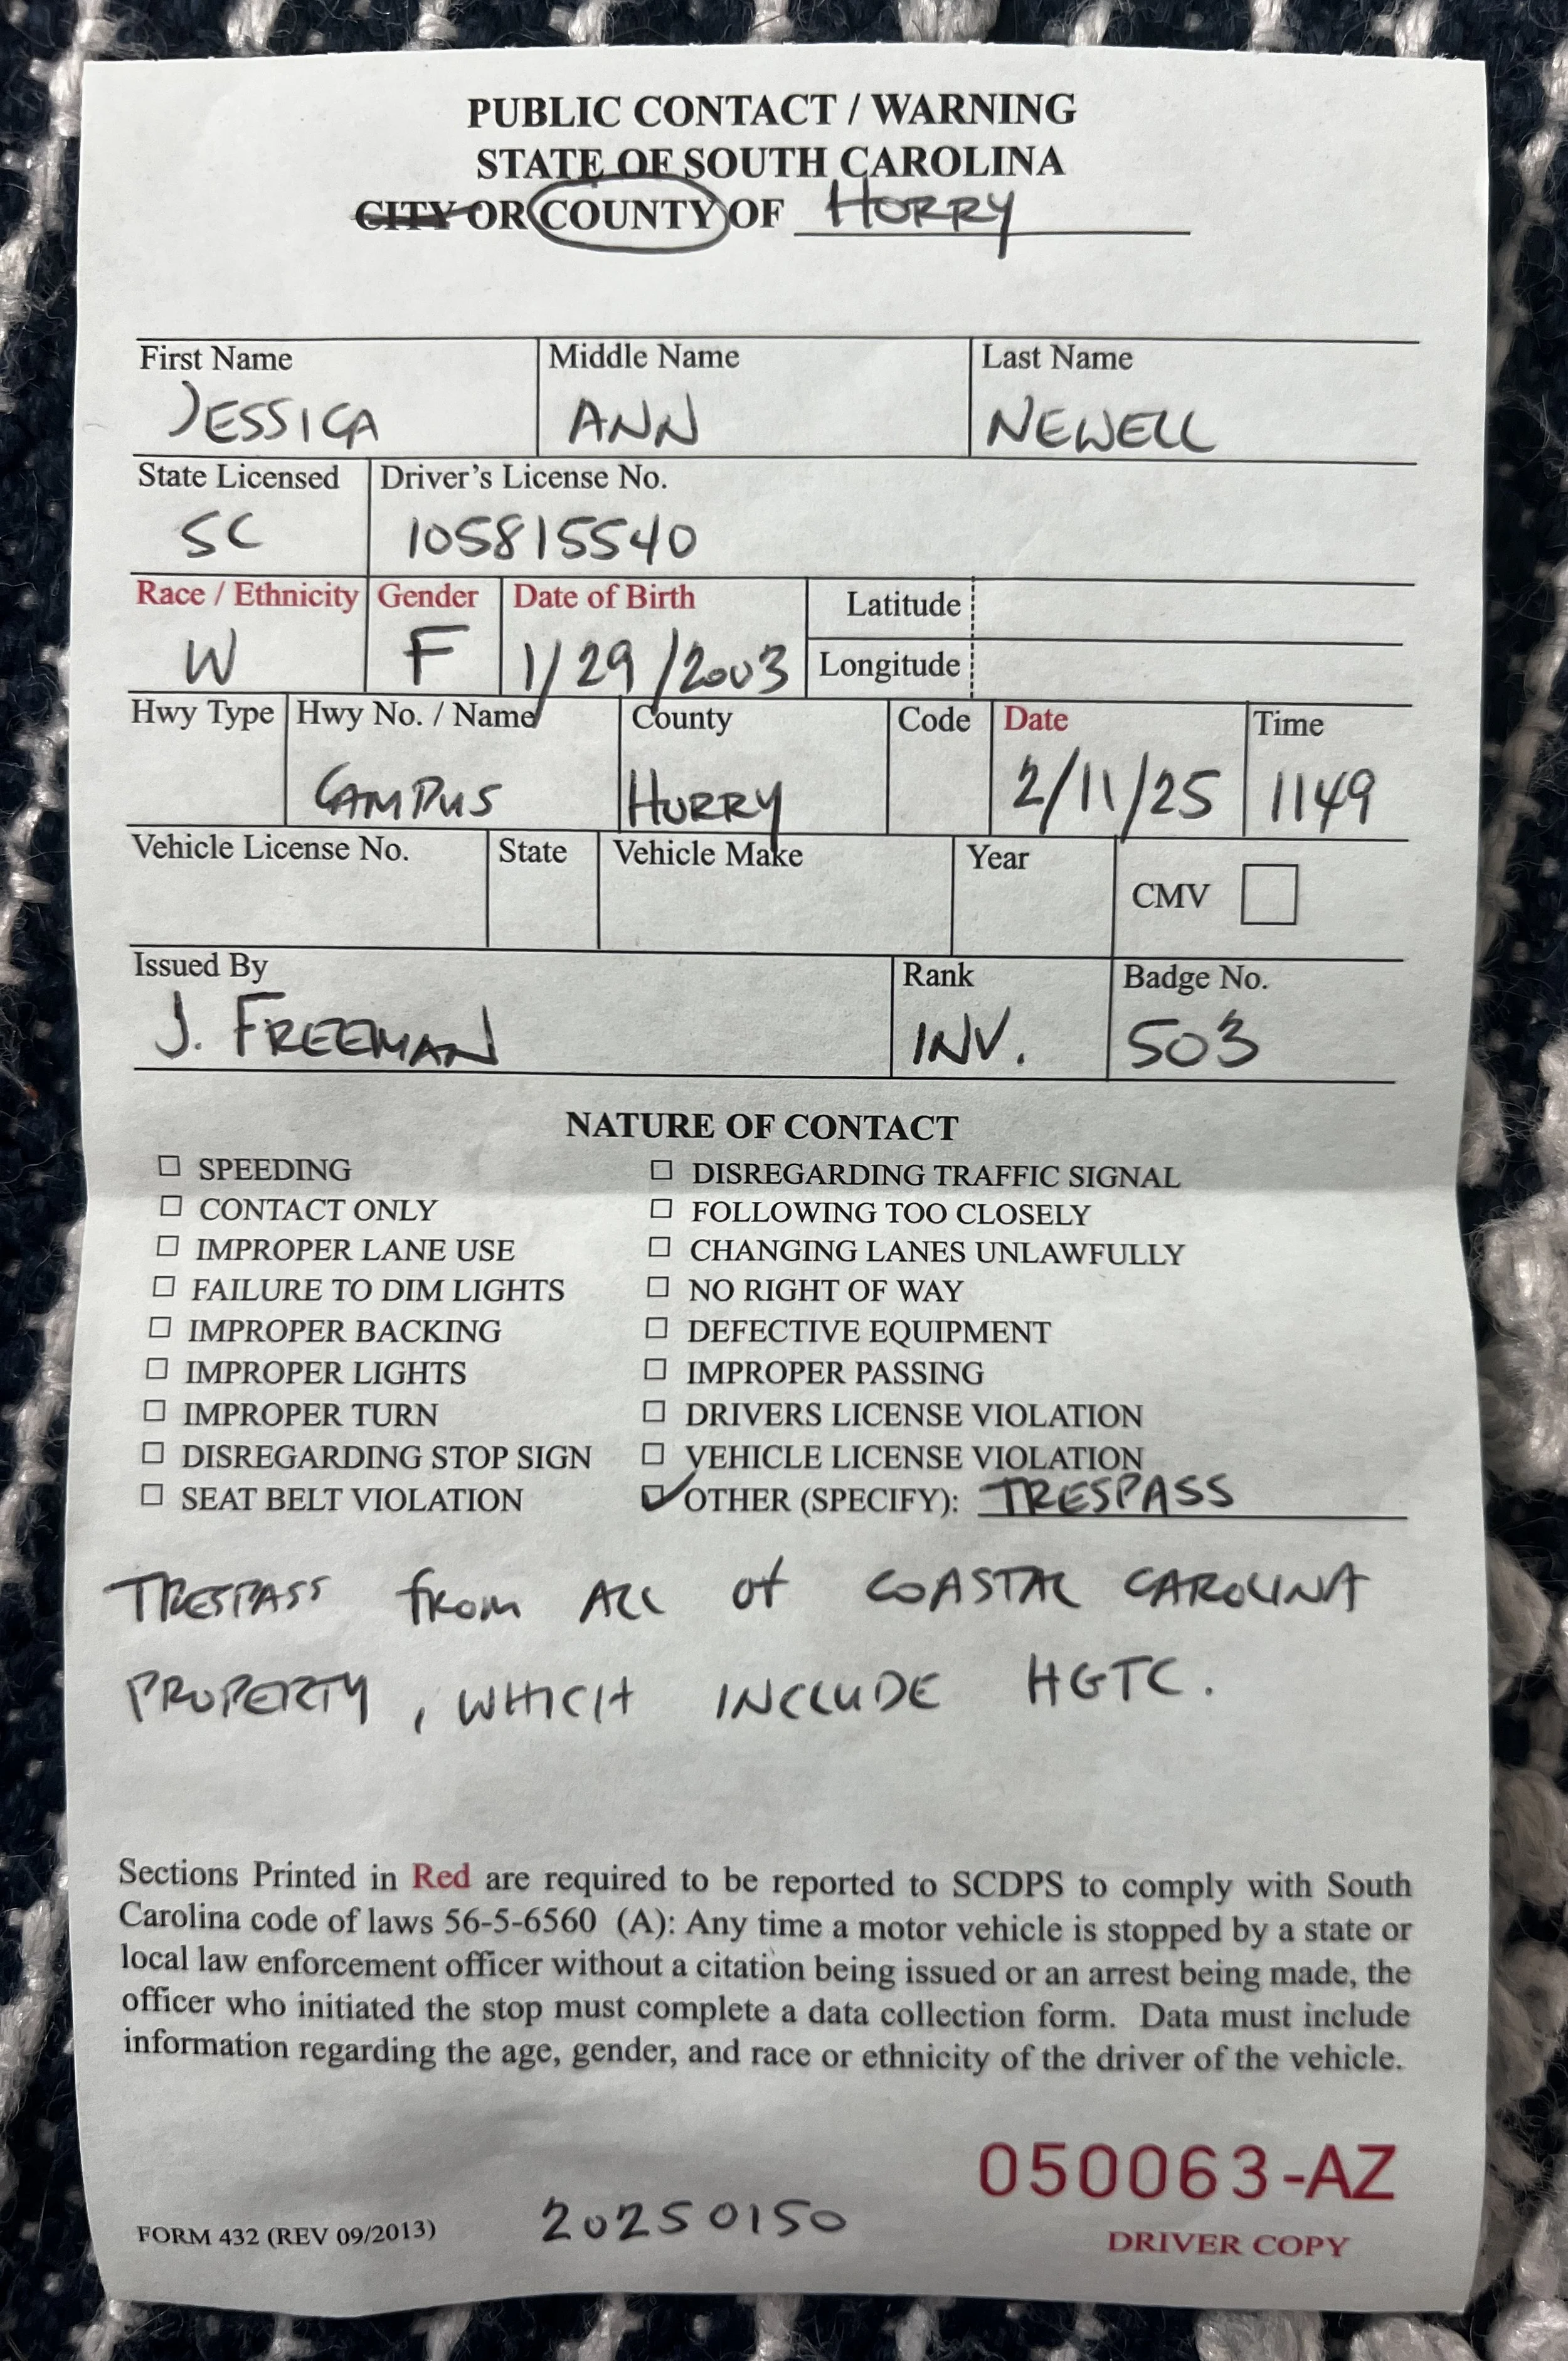 PUBLIC CONTACT / WARNING
STATE OF SOUTH CAROLINA
CITY OR COUNTY OF HORRY
First Name Middle Name Last Name
JESSICA ANN NEWELL
State Licensed Driver's License No.
SC 105815540
Race / Ethnicity Gender Date of Birth Latitude
W F 1/29/2003 Longitude
Hwy Type Hwy No. / Name County Code Date Time
CAMPUS HORRY 2/11/25 1149
Vehicle License No. State Vehicle Make Year CMV
Issued By Rank Badge No.
J. FREEMAN INV. 503
NATURE OF CONTACT
SPEEDING DISREGARDING TRAFFIC SIGNAL
CONTACT ONLY FOLLOWING TOO CLOSELY
IMPROPER LANE USE CHANGING LANES UNLAWFULLY
FAILURE TO DIM LIGHTS NO RIGHT OF WAY
IMPROPER BACKING DEFECTIVE EQUIPMENT
IMPROPER LIGHTS IMPROPER PASSING
IMPROPER TURN DRIVERS LICENSE VIOLATION
DISREGARDING STOP SIGN VEHICLE LICENSE VIOLATION
SEAT BELT VIOLATION OTHER (SPECIFY): TRESPASS
TRESPASS from ALL of COASTAL CAROLINA
PROPERTY, WHICH INCLUDE HGTC.
Sections Printed in Red are required to be reported to SCDPS to comply with South
Carolina code of laws 56-5-6560 (A): Any time a motor vehicle is stopped by a state or
local law enforcement officer without a citation being issued or an arrest being made, the
officer who initiated the stop must complete a data collection form. Data must include
information regarding the age, gender, and race or ethnicity of the driver of the vehicle.
050063-AZ
FORM 432 (REV 09/2013) 20250150 DRIVER COPY